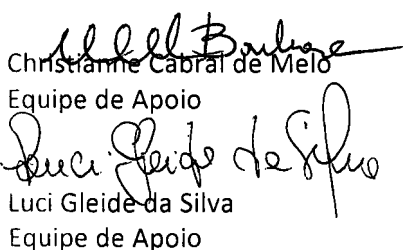 Christianne Cabral de Melo
Equipe de Apoio
Luci Gleide da Silva
Luci Gleide da Silva
Equipe de Apoio